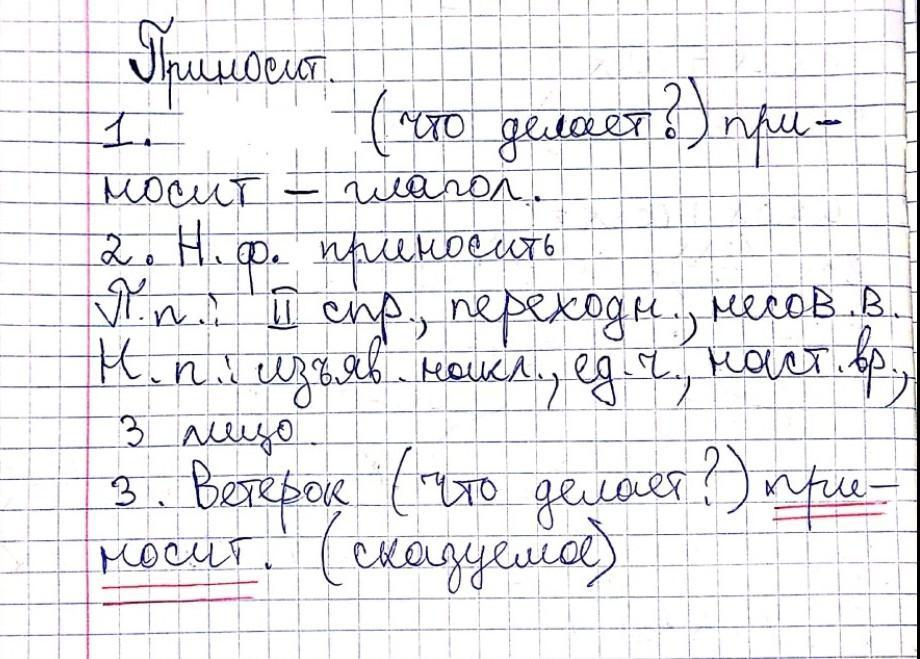 Приносит.
1. (что делает?) при-
носит – глагол.
2. Н.ф. приносить
П.п.: II спр., переходн., несов.в.
Н.п.: изъяв. накл., ед.ч., наст.вр.,
3 лицо.
3. Ветерок (что делает?) при-
носит. (сказуемое)